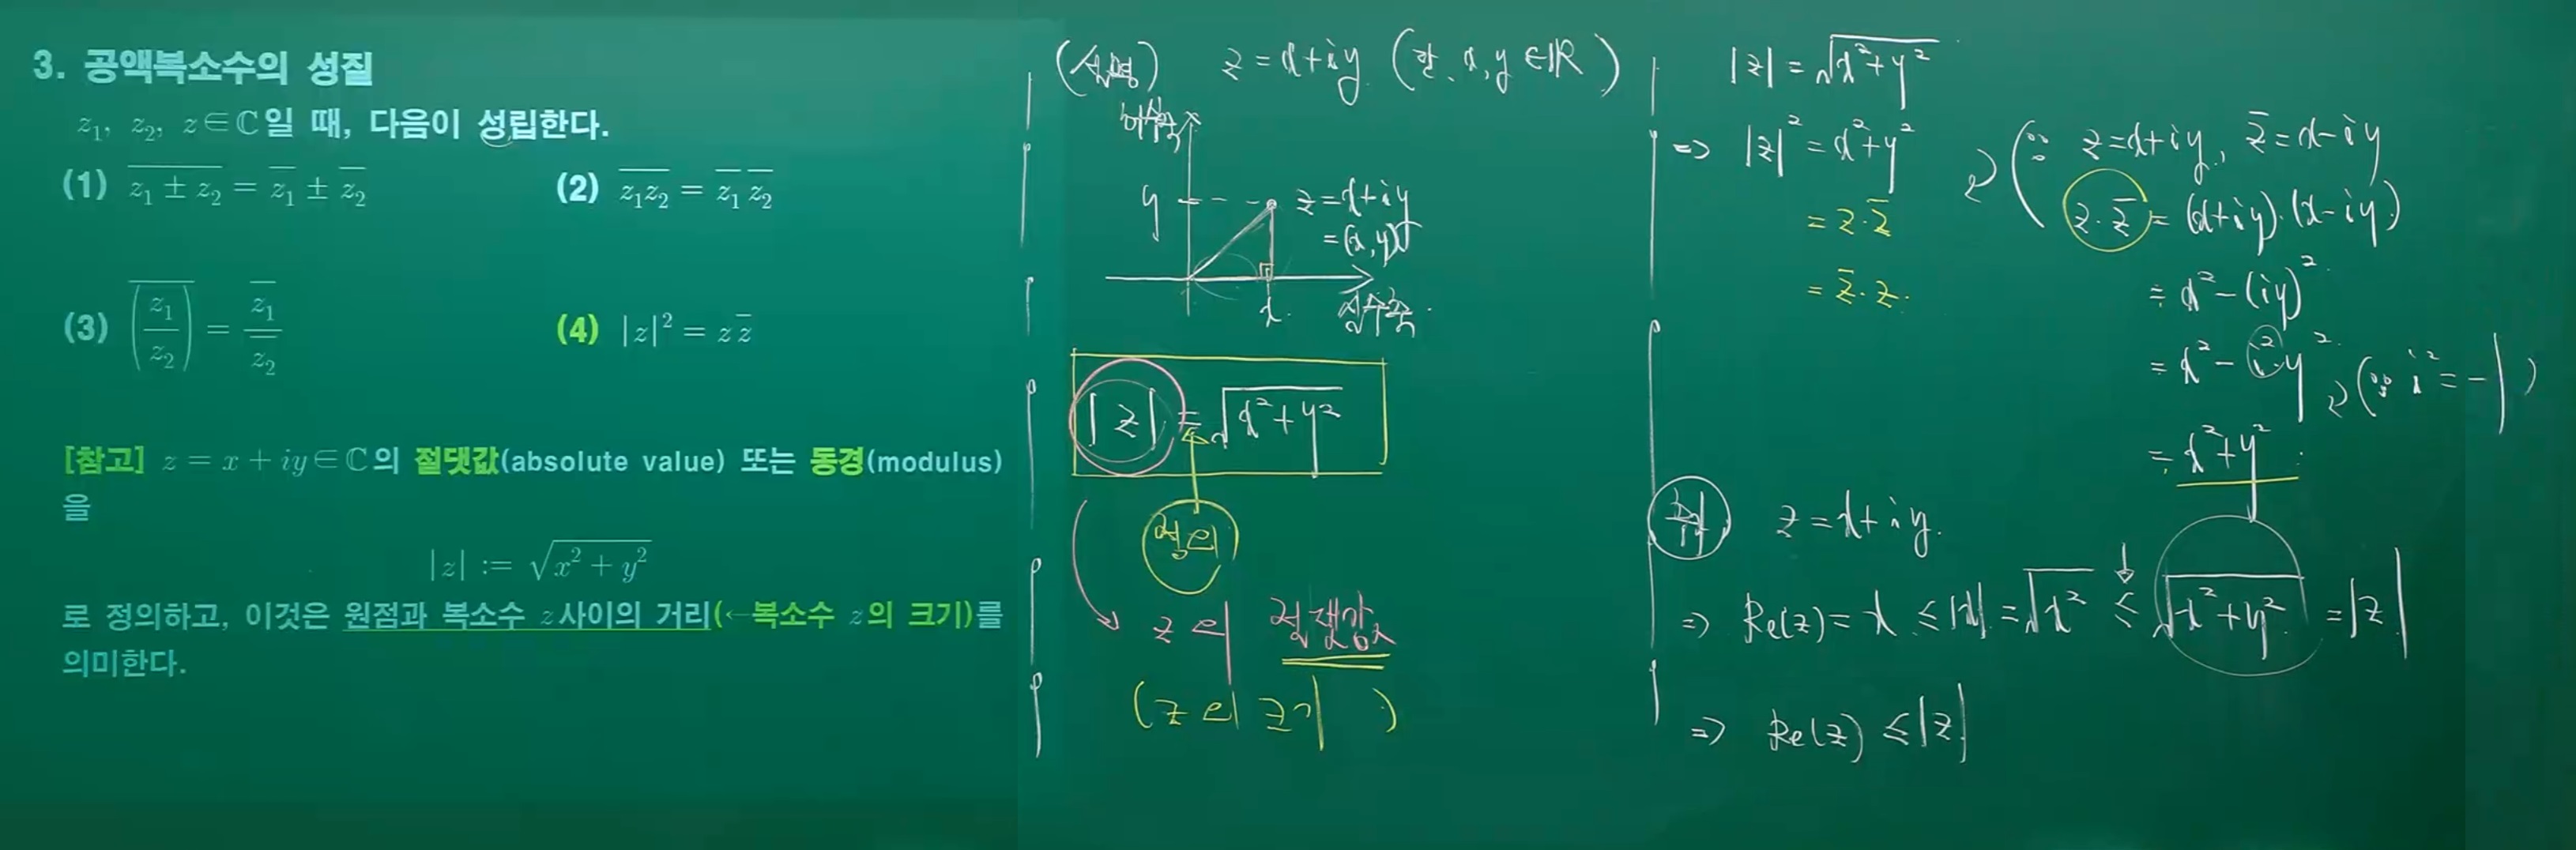 3. 공액복소수의 성질
z₁, z₂, z∈ℂ일 때, 다음이 성립한다.
(1) \overline{z₁ ± z₂} = \overline{z₁} ± \overline{z₂}
(2) \overline{z₁z₂} = \overline{z₁} \overline{z₂}
(3) \overline{(z₁/z₂)} = \overline{z₁}/\overline{z₂}
(4) |z|² = z\overline{z}
[참고] z = x + iy∈ℂ의 절댓값(absolute value) 또는 동경(modulus)
을
|z| := √(x² + y²)
로 정의하고, 이것은 원점과 복소수 z사이의 거리(←복소수 z의 크기)를
의미한다.
(설명) z = x+iy (단, x, y ∈ℝ)
허수축
y
z = x+iy
= (x, y)
x
실수축
|z| = √(x²+y²)
정의
z의 절댓값
(z의 크기)
|z| = √(x²+y²)
⇒ |z|² = x²+y²
= z·\overline{z}
= \overline{z}·z.
(∵ z = x+iy, \overline{z} = x-iy
z·\overline{z} = (x+iy)·(x-iy)
= x²-(iy)²
= x²-i²y² (∵ i² = -1)
= x²+y²
z = x+iy.
⇒ Re(z) = x ≤ |x| = √x² ≤ √(x²+y²) = |z|
⇒ Re(z) ≤ |z|